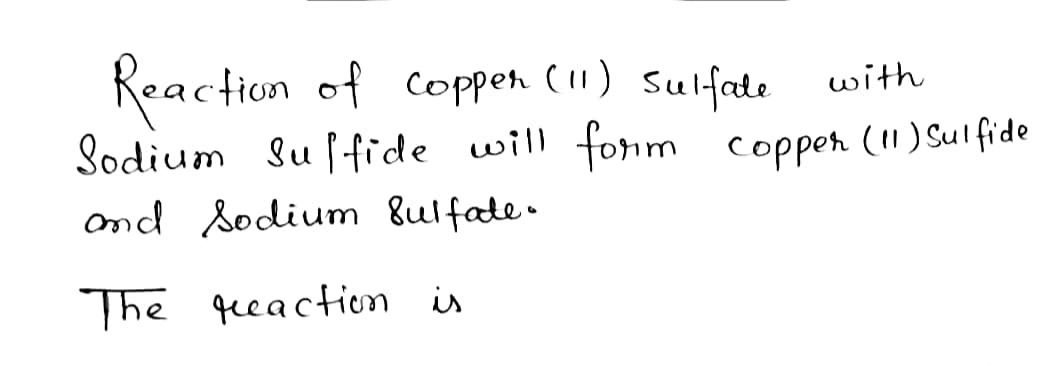 Reaction of copper (II) sulfate with
Sodium Sulfide will form copper (II) Sulfide
and Sodium Sulfate.
The reaction is